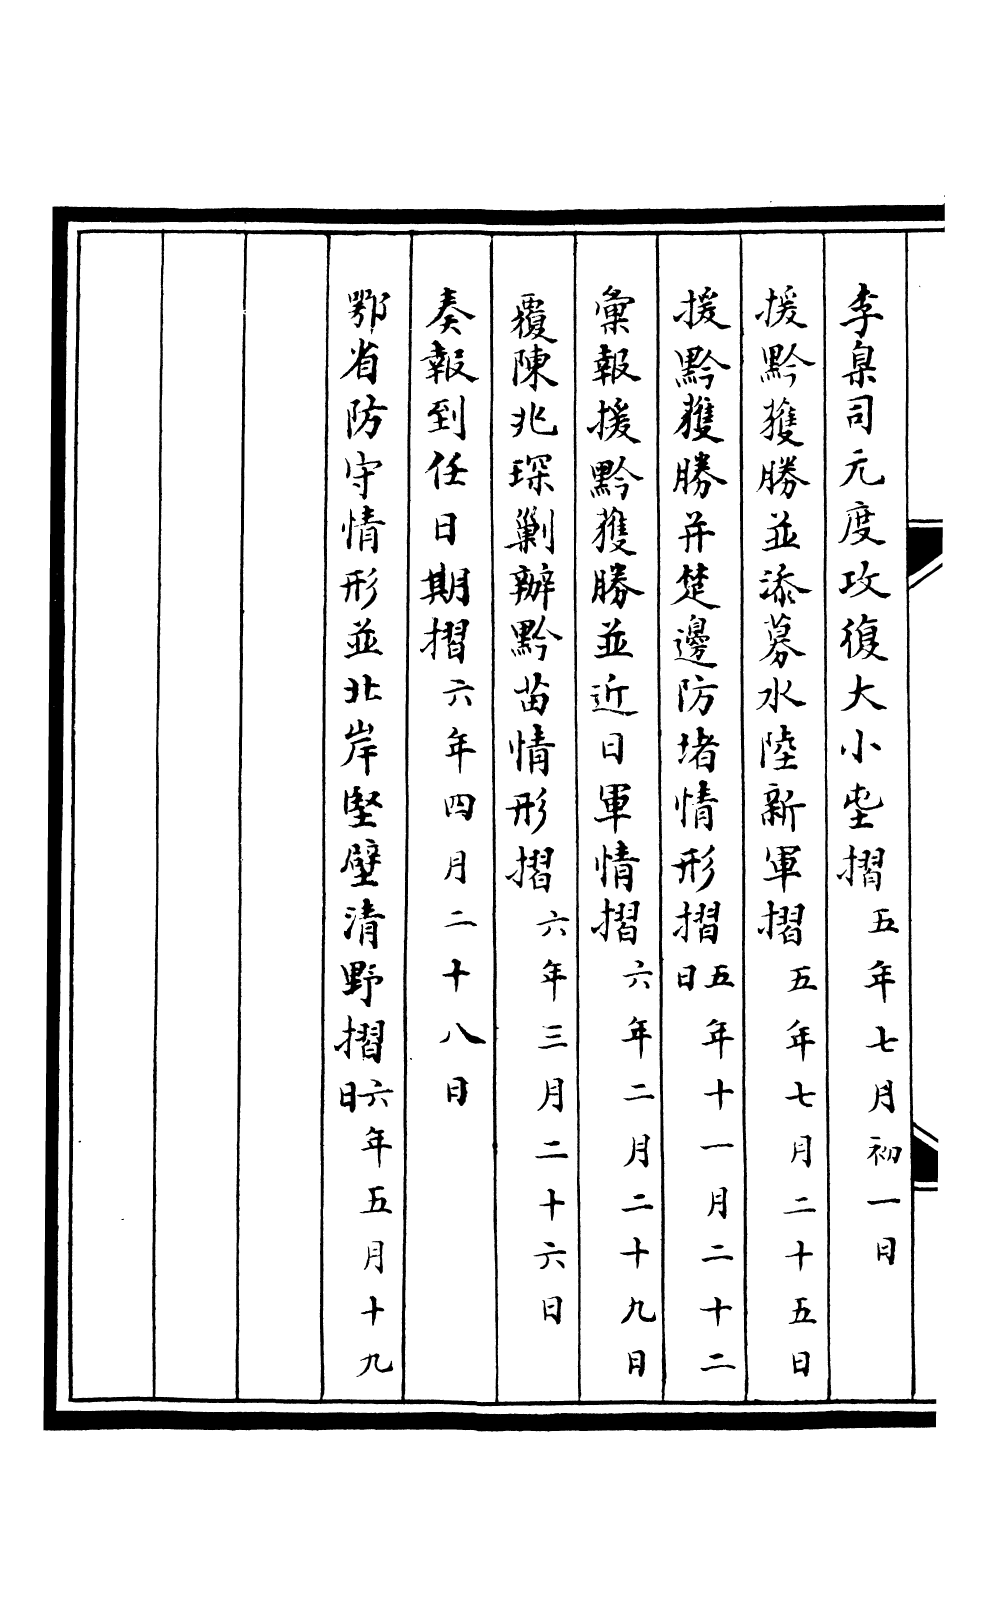 李臬司元度攻復大小屯摺五年七月初一日
援黔獲勝並添募水陸新軍摺五年七月二十五日
援黔獲勝并楚邊防堵情形摺五年十一月二十二日
彙報援黔獲勝並近日軍情摺六年二月二十九日
覆陳兆琛剿辦黔苗情形摺六年三月二十六日
奏報到任日期摺六年四月二十八日
鄂省防守情形並北岸堅壁清野摺六年五月十九日